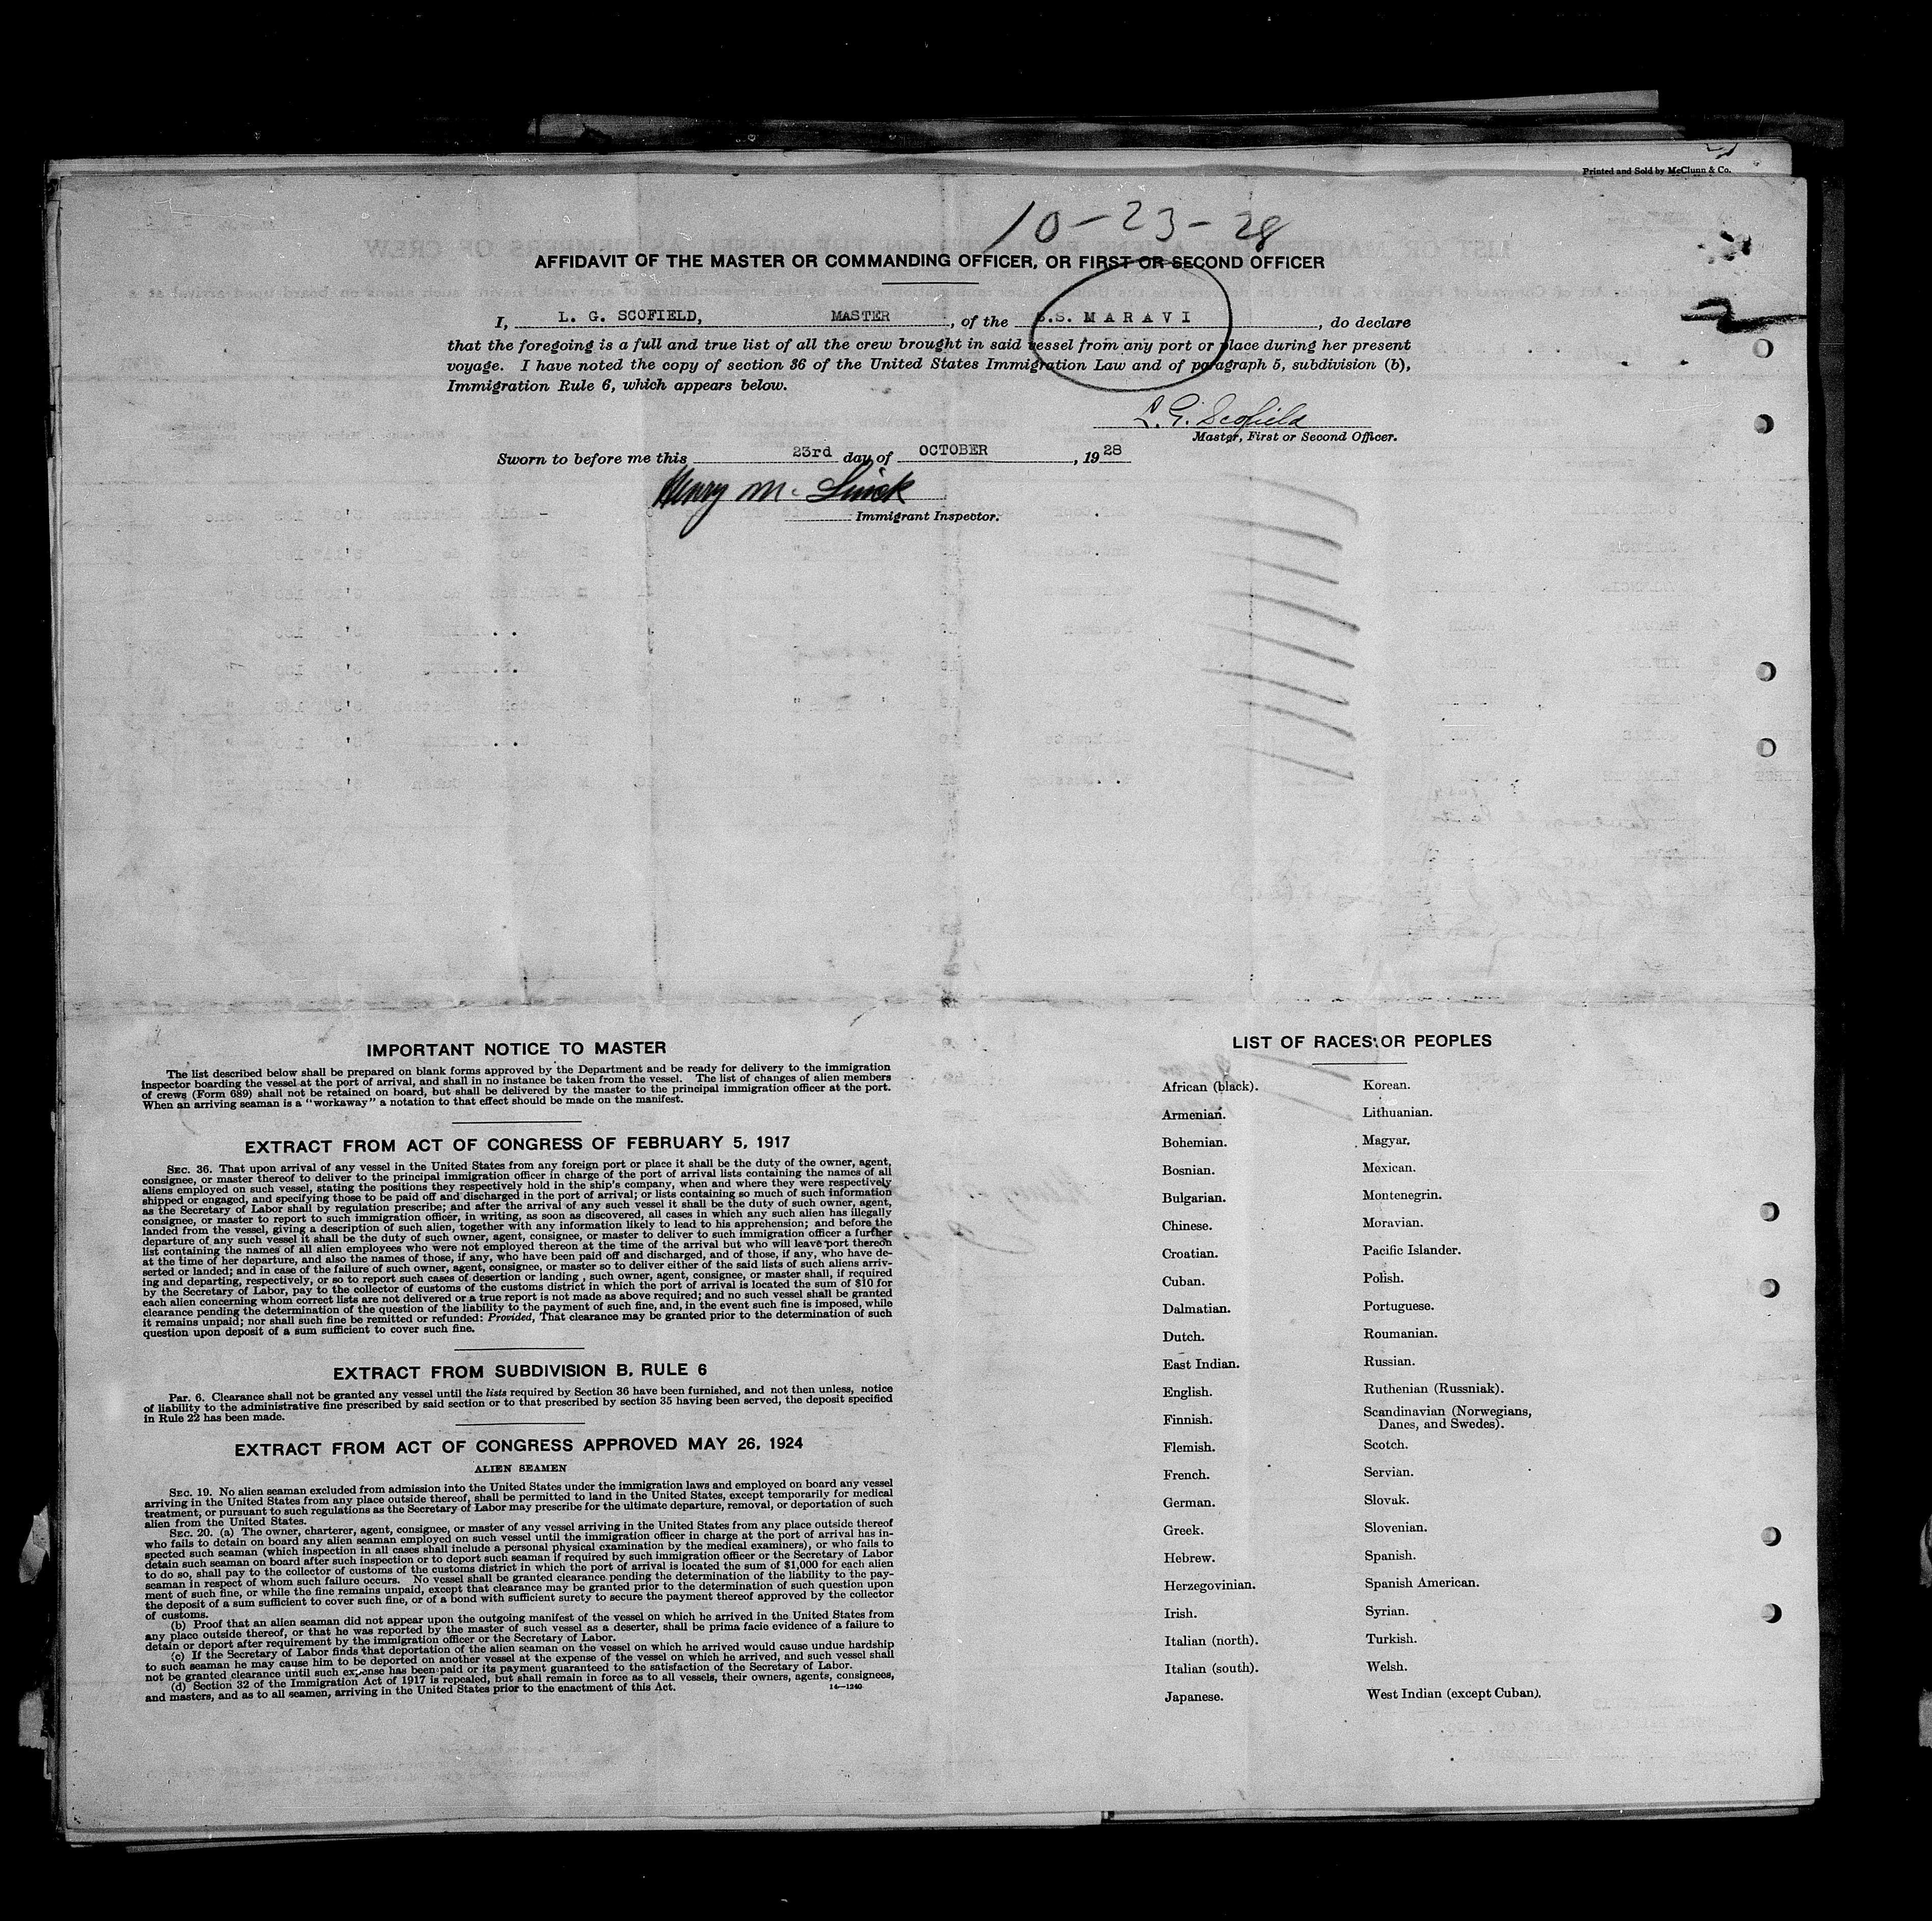 Printed and Sold by McClunn & Co.
10-23-28
AFFIDAVIT OF THE MASTER OR COMMANDING OFFICER, OR FIRST OR SECOND OFFICER
I, L. G. SCOFIELD, MASTER, of the S.S. M A R A V I, do declare
that the foregoing is a full and true list of all the crew brought in said vessel from any port or place during her present
voyage. I have noted the copy of section 36 of the United States Immigration Law and of paragraph 5, subdivision (b),
Immigration Rule 6, which appears below.
L. G. Scofield
Master, First or Second Officer.
Sworn to before me this 23rd day of OCTOBER, 1928
Henry M.
Immigrant Inspector.
IMPORTANT NOTICE TO MASTER
The list described below shall be prepared on blank forms approved by the Department and be ready for delivery to the immigration
inspector boarding the vessel at the port of arrival, and shall in no instance be taken from the vessel. The list of changes of alien members
of crews (Form 689) shall not be retained on board, but shall be delivered by the master to the principal immigration officer at the port.
When an arriving seaman is a "workaway" a notation to that effect should be made on the manifest.
EXTRACT FROM ACT OF CONGRESS OF FEBRUARY 5, 1917
SEC. 36. That upon arrival of any vessel in the United States from any foreign port or place it shall be the duty of the owner, agent,
consignee, or master thereof to deliver to the principal immigration officer in charge of the port of arrival lists containing the names of all
aliens employed on such vessel, stating the positions they respectively hold in the ship's company, when and where they were respectively
shipped or engaged, and specifying those to be paid off and discharged in the port of arrival; or lists containing so much of such information
as the Secretary of Labor shall by regulation prescribe; and after the arrival of any such vessel it shall be the duty of such owner, agent,
consignee, or master to report to such immigration officer, in writing, as soon as discovered, all cases in which any such alien has illegally
landed from the vessel, giving a description of such alien, together with any information likely to lead to his apprehension; and before the
departure of any such vessel it shall be the duty of such owner, agent, consignee, or master to deliver to such immigration officer a further
list containing the names of all alien employees who were not employed thereon at the time of the arrival but who will leave port thereon
at the time of her departure, and also the names of those, if any, who have been paid off and discharged, and of those, if any, who have de-
serted or landed; and in case of the failure of such owner, agent, consignee, or master so to deliver either of the said lists of such aliens arriv-
ing and departing, respectively, or so to report such cases of desertion or landing, such owner, agent, consignee, or master shall, if required
by the Secretary of Labor, pay to the collector of customs of the customs district in which the port of arrival is located the sum of $10 for
each alien concerning whom correct lists are not delivered or a true report is not made as above required; and no such vessel shall be granted
clearance pending the determination of the question of the liability to the payment of such fine, and, in the event such fine is imposed, while
it remains unpaid; nor shall such fine be remitted or refunded: Provided, That clearance may be granted prior to the determination of such
question upon deposit of a sum sufficient to cover such fine.
EXTRACT FROM SUBDIVISION B, RULE 6
Par. 6. Clearance shall not be granted any vessel until the lists required by Section 36 have been furnished, and not then unless, notice
of liability to the administrative fine prescribed by said section or to that prescribed by section 35 having been served, the deposit specified
in Rule 22 has been made.
EXTRACT FROM ACT OF CONGRESS APPROVED MAY 26, 1924
ALIEN SEAMEN
SEC. 19. No alien seaman excluded from admission into the United States under the immigration laws and employed on board any vessel
arriving in the United States from any place outside thereof, shall be permitted to land in the United States, except temporarily for medical
treatment, or pursuant to such regulations as the Secretary of Labor may prescribe for the ultimate departure, removal, or deportation of such
alien from the United States.
SEC. 20. (a) The owner, charterer, agent, consignee, or master of any vessel arriving in the United States from any place outside thereof
who fails to detain on board any alien seaman employed on such vessel until the immigration officer in charge at the port of arrival has in-
spected such seaman (which inspection in all cases shall include a personal physical examination by the medical examiners), or who fails to
detain such seaman on board after such inspection or to deport such seaman if required by such immigration officer or the Secretary of Labor
to do so, shall pay to the collector of customs of the customs district in which the port of arrival is located the sum of $1,000 for each alien
seaman in respect of whom such failure occurs. No vessel shall be granted clearance pending the determination of the liability to the pay-
ment of such fine, or while the fine remains unpaid, except that clearance may be granted prior to the determination of such question upon
the deposit of a sum sufficient to cover such fine, or of a bond with sufficient surety to secure the payment thereof approved by the collector
of customs.
(b) Proof that an alien seaman did not appear upon the outgoing manifest of the vessel on which he arrived in the United States from
any place outside thereof, or that he was reported by the master of such vessel as a deserter, shall be prima facie evidence of a failure to
detain or deport after requirement by the immigration officer or the Secretary of Labor.
(c) If the Secretary of Labor finds that deportation of the alien seaman on the vessel on which he arrived would cause undue hardship
to such seaman he may cause him to be deported on another vessel at the expense of the vessel on which he arrived, and such vessel shall
not be granted clearance until such expense has been paid or its payment guaranteed to the satisfaction of the Secretary of Labor.
(d) Section 32 of the Immigration Act of 1917 is repealed, but shall remain in force as to all vessels, their owners, agents, consignees,
and masters, and as to all seamen, arriving in the United States prior to the enactment of this Act.
14—1240
LIST OF RACES OR PEOPLES
African (black).
Armenian.
Bohemian.
Bosnian.
Bulgarian.
Chinese.
Croatian.
Cuban.
Dalmatian.
Dutch.
East Indian.
English.
Finnish.
Flemish.
French.
German.
Greek.
Hebrew.
Herzegovinian.
Irish.
Italian (north).
Italian (south).
Japanese.
Korean.
Lithuanian.
Magyar.
Mexican.
Montenegrin.
Moravian.
Pacific Islander.
Polish.
Portuguese.
Roumanian.
Russian.
Ruthenian (Russniak).
Scandinavian (Norwegians,
Danes, and Swedes).
Scotch.
Servian.
Slovak.
Slovenian.
Spanish.
Spanish American.
Syrian.
Turkish.
Welsh.
West Indian (except Cuban).